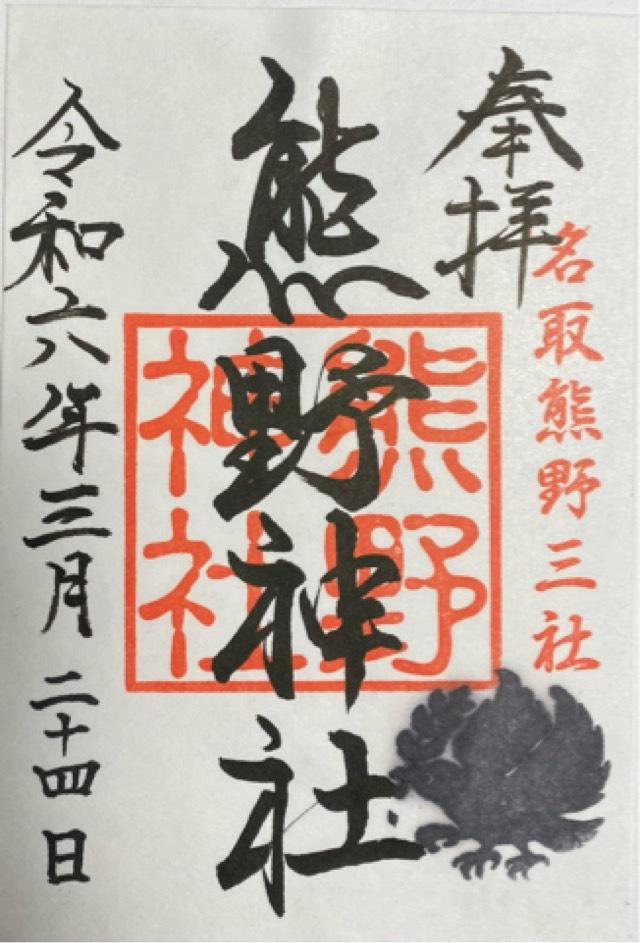 奉拝
名取熊野三社
熊野神社
熊野
神社
令和六年三月二十四日